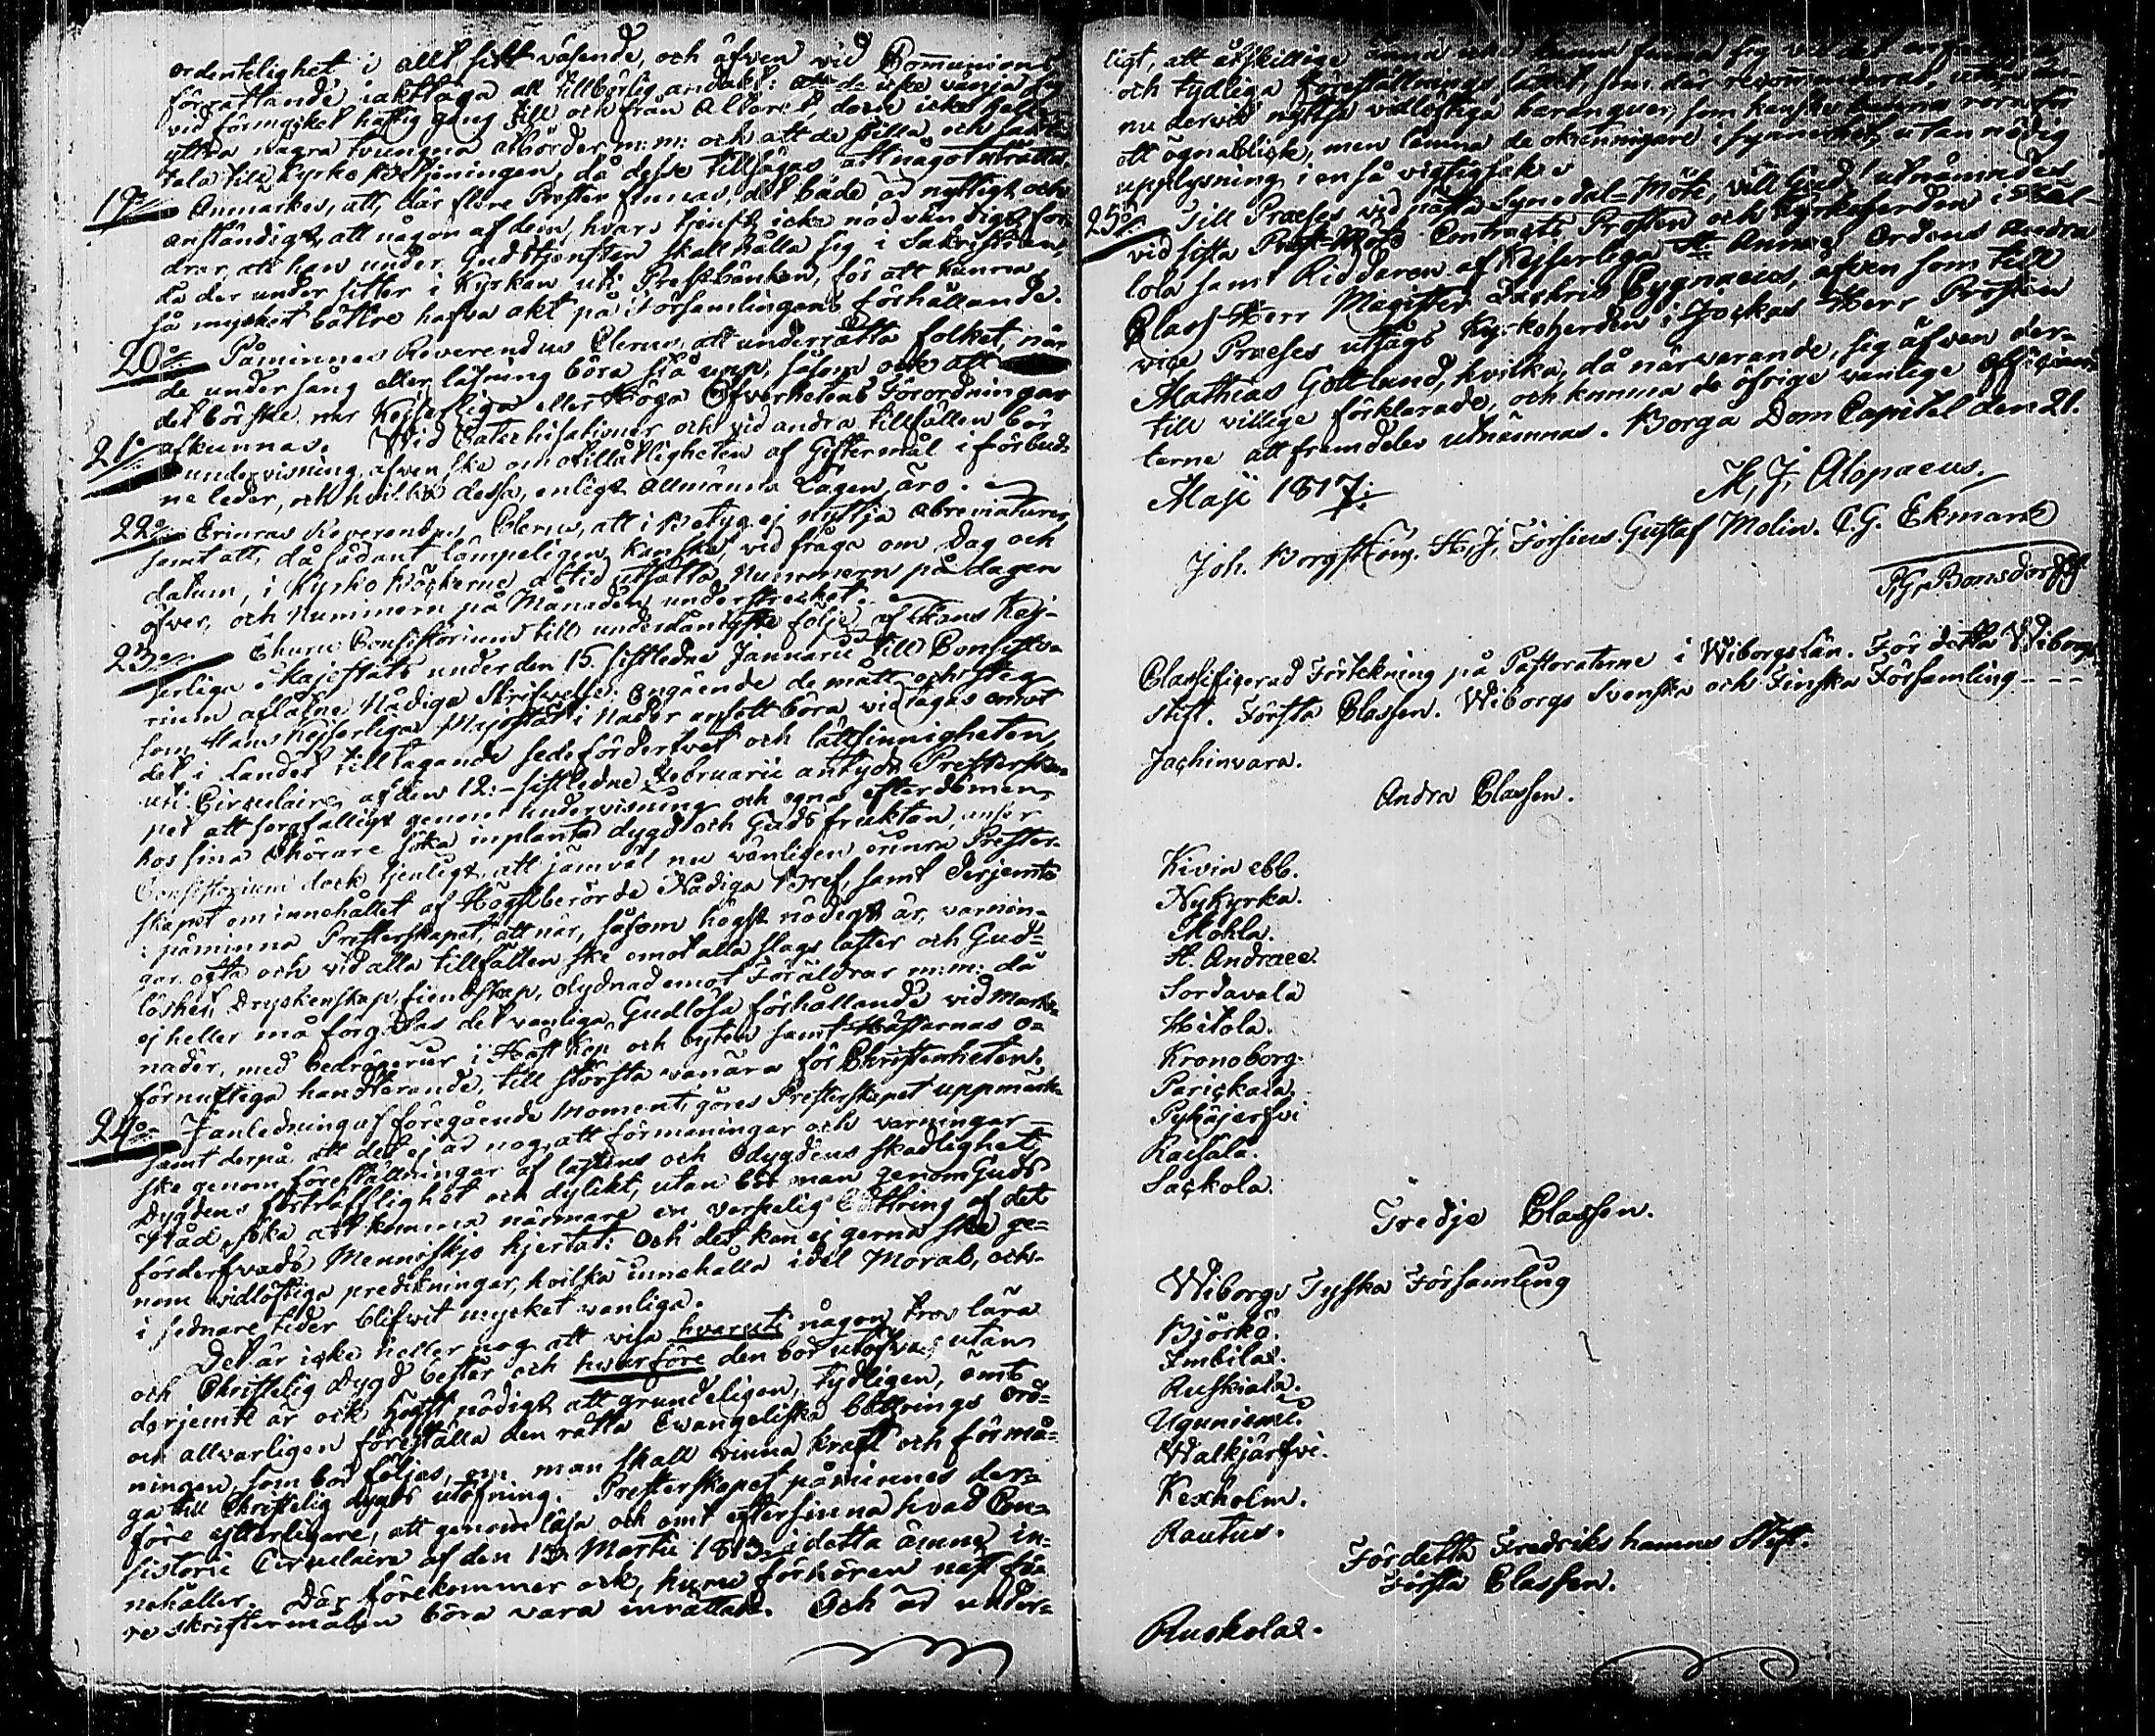 ordentelighet i allt sitt väsende, och äfven vid Communions
förrättande iakttaga all tillbörlig andakt: icke vänja sig
vid förmycket hastig gång till och från Altaret, dervid icke heller
yttra några tvungna åtbörder m:m: och att de stilla och sakta
tala till Kyrko betjeningen, då desse tillsägas att något uträtta.
19º Anmärkes, att, där flere Prester finnas, det både är nyttigt och
anständigt, att någon af dem, hvars tjenst icke nödvändigt for-
drar, att han under Gudstjensten skall hålla sig i Sakristian,
då der under sitter i Kyrkan uti Prestbänken, för att kunna
så mycket bättre hafva akt på Församlingens förhållande.
20º Påminnes Reverendus Clerus, att underrätta folket, när
de under sång eller läsning böra stå upp, såsom ock att
det bör ske när Kejserliga eller Höga Öfverhetens Förordningar
afkunnas.
21º Vid Catechisationer och vid andra tillfällen bör
undervisning äfven ske om otillåtligheten af Giftermål i förbud-
ne leder, och hvilka dessa, enligt Allmänna Lagen äro.
22º Erinras Reverendus Clerus, att i Betyg ej nyttja abreviaturer
samt att, då sådant lämpeligen kan ske, vid fråga om Dag och
datum, i Kyrko Böckerne alltid utsätta Nummern på dagen
öfver, och Nummern på Månaden understrecket.
23º Ehuru Consistorium till underdånigste följe af Hans Kej-
serliga Majestäts under den 15. sistledne Januarii till Consisto-
rium aflåtne Nådiga Skrifvelse angående de mått och steg
som Hans Kejserliga Majestät i Nåder ansett böra vidtagas emot
det i Landet tilltagande sedeförderfvet och lättsinnigheten,
uti Circulaire af den 12: sistledne Februarii antydt Presterska-
pet att sorgfälligt genom undervisning och egna efterdömen
hos sina åhörare söka inplanta dygd och Guds fruktan, anser
Consistorium dock tjenligt, att jämväl nu vänligen erinra Prester-
skapet om innehållet af Högstberörde Nådiga Bref, samt derjemte
påminna Presterskapet, att när, såsom högst nödigt är, varnin-
gar ofta och vid alla tillfällen ske emot alla slags laster och Gud-
löshet, Dryckenskap, fiendskap, olydnad emot Föräldrar m:m: då
ej heller må förgätas det vanliga Gudlösa förhållande vid Mark-
nader, med bedrägerier i Häst Köp och byten samt Hästarnas o-
förnuftiga handterande, till största vanära för Christenheten.
24º I anledning af föregående Moment, göres Presterskapet uppmärk-
samt derpå att det ej är nog, att förmaningar och varningar
ske genom föreställningar af lastens och Odygdens skadlighet,
Dygdens förträfflighet och dylikt, utan bör man genom Guds
Nåd söka att komma närmare en verkelig bättring af det
förderfvade Menniskjo hjertat: Och det kan ej gerna ske ge-
nom vidlöftiga predikningar, hvilka innehålla idel Moral, och
i sednare tider blifvit mycket vanliga.
Det är icke heller nog att visa hvaruti någon tros lära
och Christelig dygd består och hvarföre den bör utöfvas, utan
derjemte är ock högst nödigt att grundeligen, tydligen, ömt
och allvarligen föreställa den rätta Evangeliska bättrings ord-
ningen som bör följas, om man skall vinna kraft och förmå-
ga till Christelig dygds utöfning. Presterskapet påminnes der-
före ytterligare, att genom läsa och ömt eftersinna hvad Con-
sistorii Circulaire af den 13. Martii 1813. i detta ämne in-
nehåller. Där förekommer ock, huru förhören näst fö-
re skriftermålen böra vara inrättade. Och är under-
ligt, att åtskillige
och tydliga Föreställnings sättet, som där recommenderas, utan
nu dervid nyttja vidlöftiga haranguer, som kanske kunna röra för
ett ögnablick, men lämna de okunnigare i synnerhet, utan nödig
upplysning i en så vigtig sak.
25º Till Praeses vid nästa Synodal-Möte, vill Gud! utnämndes
vid sista Prest-Möte Contracts Prosten och Kyrkoherden i
lola samt Riddaren af Kejserliga St. Annae Ordens Andra
Class Herr Magister Zachris Cygnaeus, äfven som till
vice Praeses utsågs Kyrkoherden i Jockas Herr Prosten
Mathias Gottlund, hvilka, då närvarande, sig äfven der-
till villige förklarade, och kunna de öfrige vanlige Offician-
terne att framdeles utnämnas. Borgå Dom Capitel den 21.
Maji 1817.
M, J, Alopaeus.
Joh. Borgström. H, J, Forsius. Gustaf Molin. C. G. Ekmark
P, G, Bonsdorff
Classificerad Förtekning på Pastoraterne i Wiborgs län. För detta Wiborgs
stift. Första Classen. Wiborgs Svenska och Finska Församling - - -
Jachimvara.
Andra Classen.
Kivinebb.
Nykyrka.
Mohla.
St. Andraee.
Sordavala
Hitola.
Kronoborg.
Parickala.
Pyhäjerfvi
Raisala.
Sackola.
Tredje Classen.
Wiborgs Tyska Församling
Björkö.
Imbilax.
Ruskiala.
Uguniemi.
Walkjärfvi.
Kexholm.
Rautus.
För detta Fredriks hamns Stift.
Första Classen.
Ruokolax.